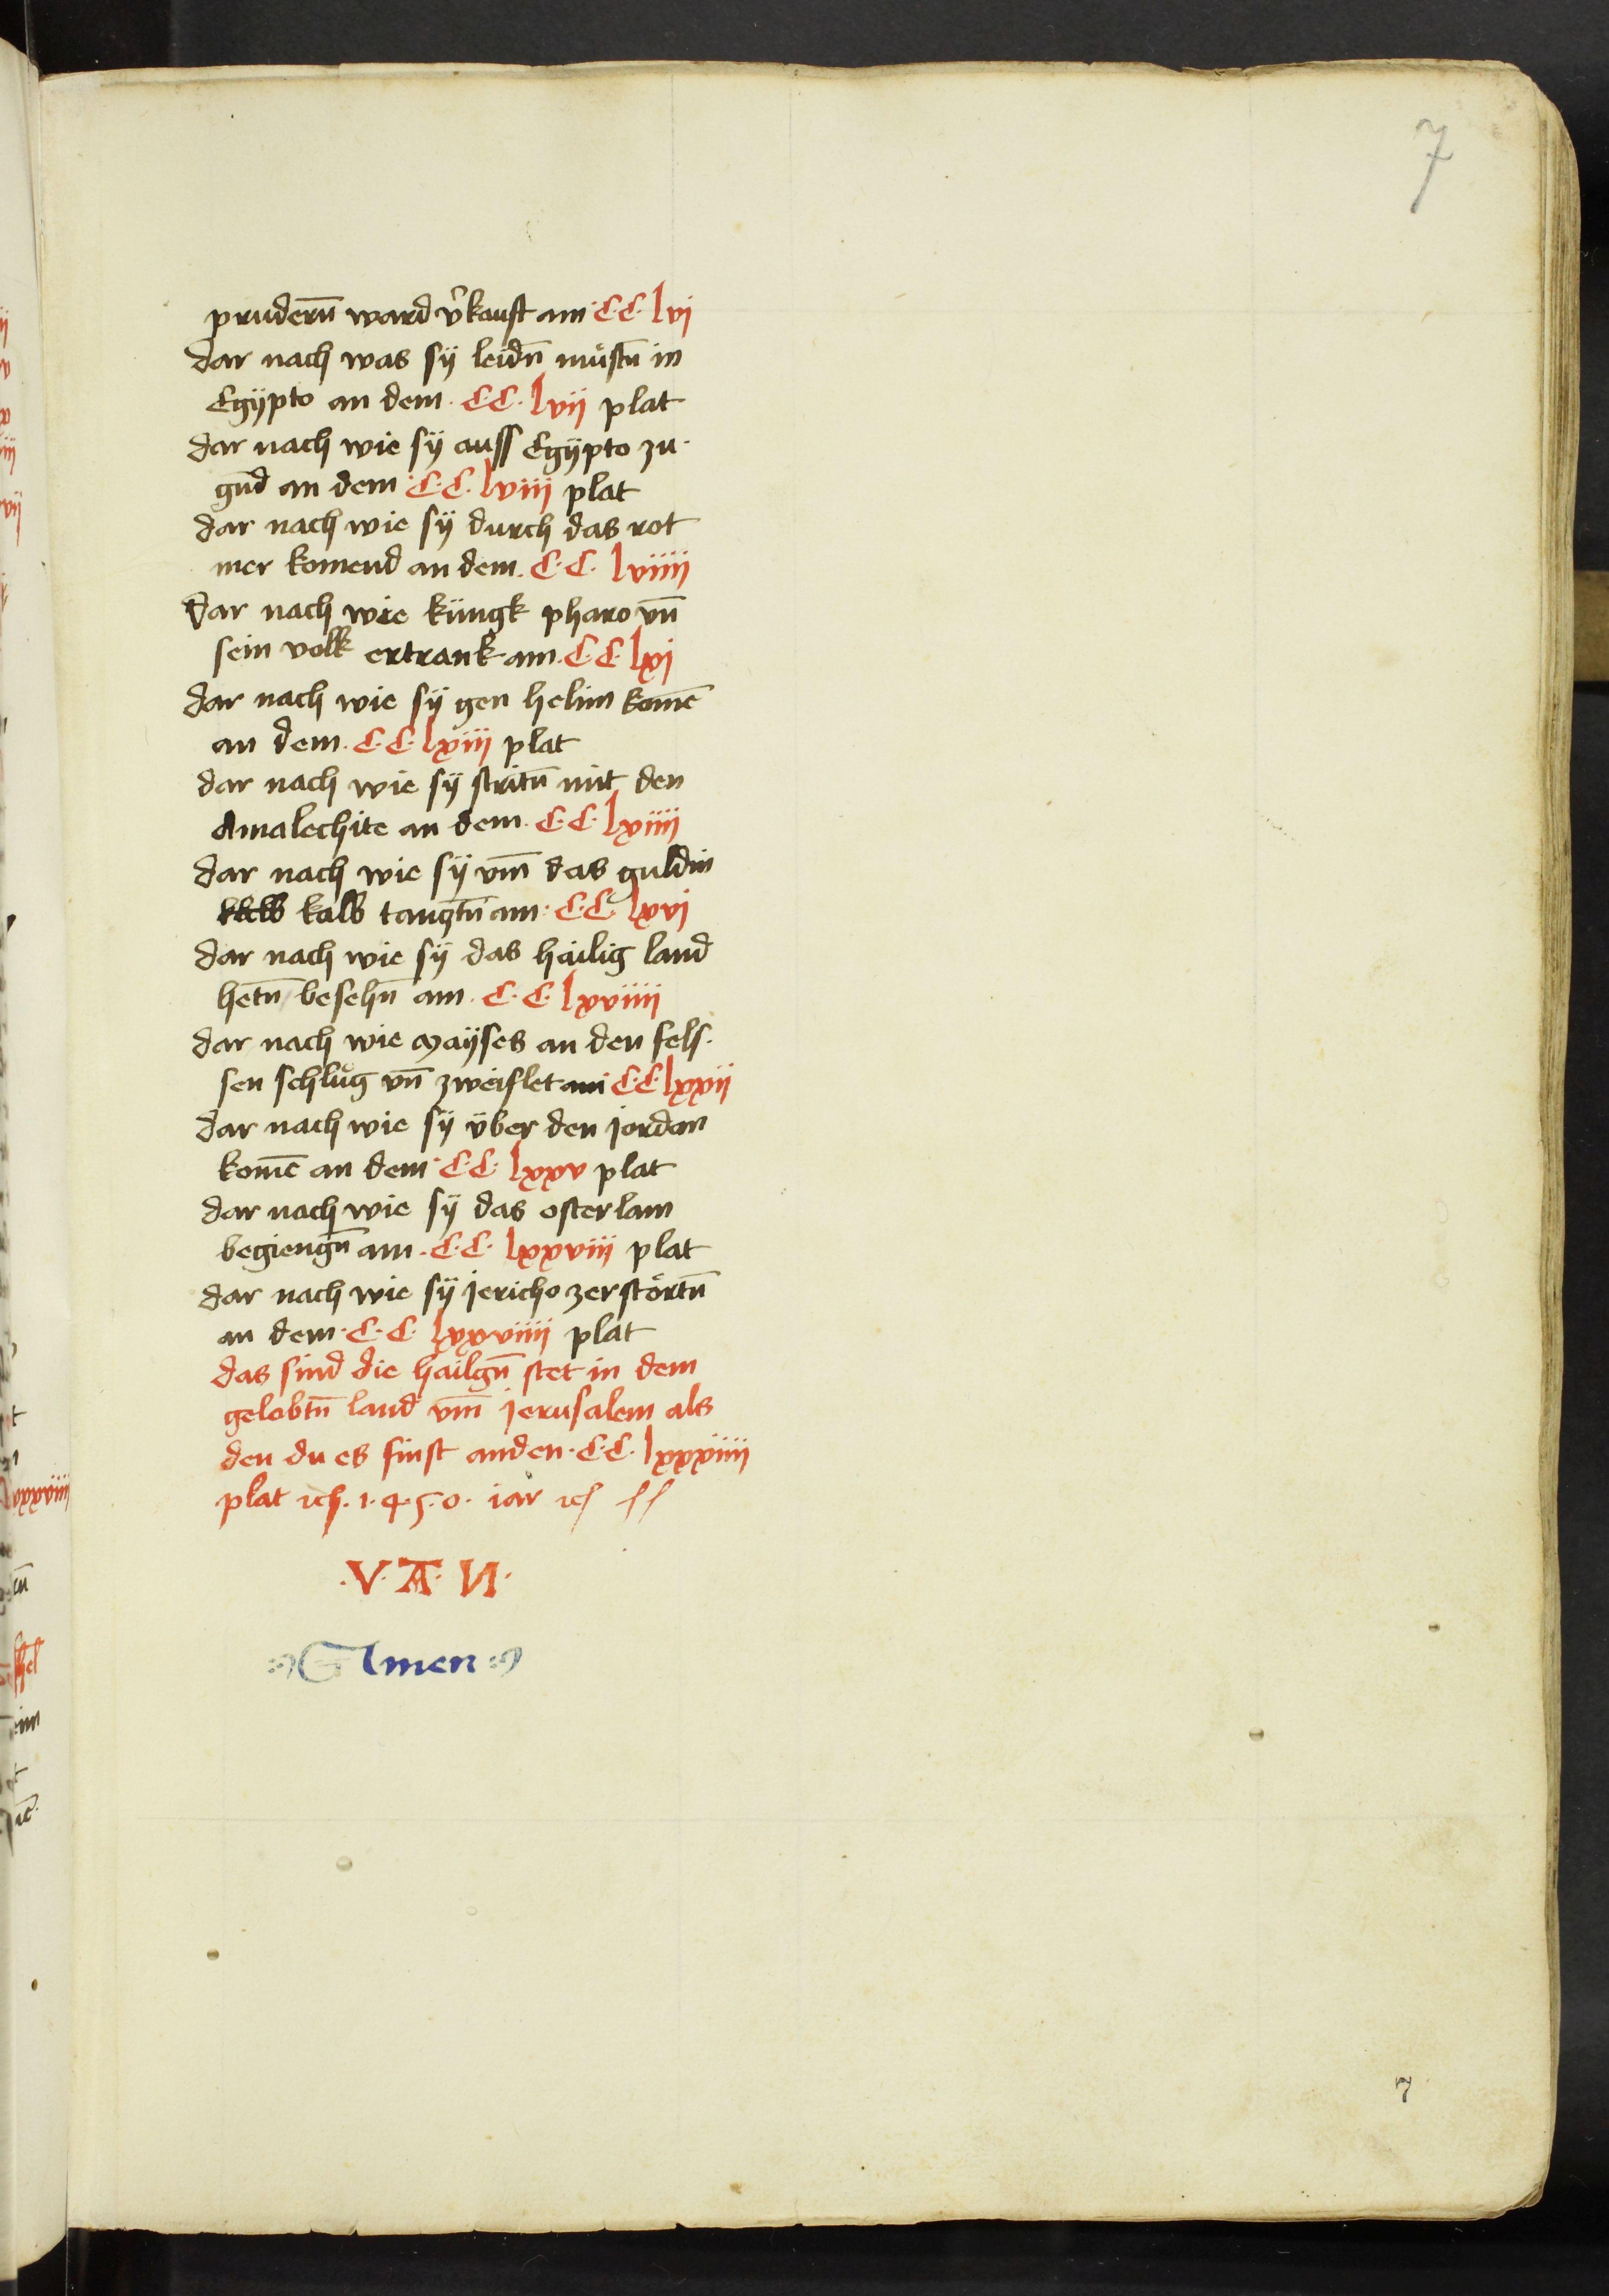 7
prudern̄ ward v̾kauft am · C·C· lvj
dar nach was sÿ leidn̄ muͤstn̄ in
Egÿpto an dem · CC· lvij plat
dar nach wie sÿ auss Egÿpto zu·
gn̄d an dem · C·C· lviij plat
dar nach wie sÿ durch das rot
mer komend an dem · C·C· lviiij
Dar nach wie küngk pharo vn̄
sein volk ertrank am · C·C· lxj
dar nach wie sÿ gen helim komē
an dem · C·C· lxiij plat
dar nach wie sÿ stritn̄ mit den
Amalechite an dem · C·C· lxiiij
dar nach wie sÿ vm̄ das guldin
kalb tangtn̄ am · C·C· lxvj
dar nach wie sÿ das hailig land
hetn̄ besehn̄ am · C·C· lxviiij
dar nach wie Maÿses an den fels·
sen schluͦg vn̄ zweiflet am · C·C· lxxij
dar nach wie sÿ über den jordan
komē an dem · C·C· lxxv plat
dar nach wie sÿ das osterlam
begiengn̄ am · C·C· lxxviij plat
dar nach wie sÿ jericho zerstörtn̄
an dem · C·C· lxxviiij plat
das sind die hailgn̄ stet in dem
gelobtn̄ land vm̄ jerusalem als
den du es finst an den · C·C· lxxxiiij
plat ⁊c̄ · 1·4·5·0· iar ⁊c̄
·V·A·N·
Amen
7